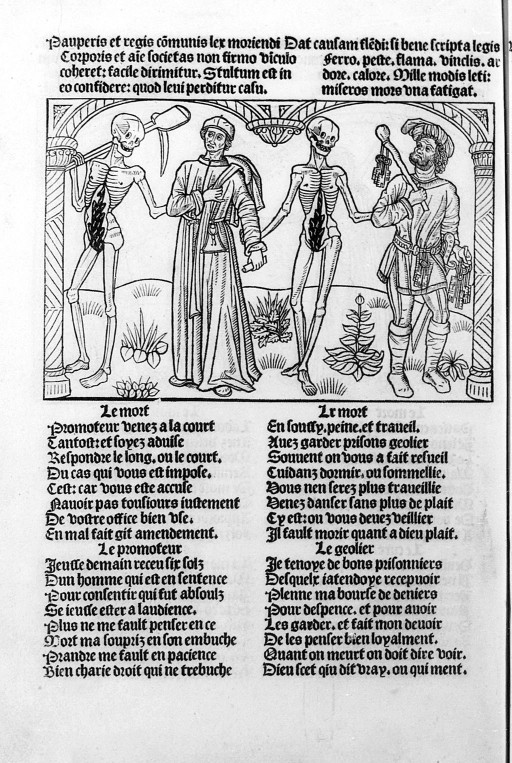 Pauperis et regis cõmunis lex moriendi Dat causam flẽdi: si bene scripta legis
Corporis et aĩe societas non firmo vĩculo
coheret: facile dirimitur. Stultum est in
eo confidere: quod leui perditur casu.
Ferro, peste, flama, vinclis, ar
dore, calore. Mille modis leti:
miseros mors vna fatigat.
Le mort
Promoteur venez a la court
Tantost: et soyez aduise
Respondre le long, ou le court.
Du cas qui vous est impose.
Cest: car vous este accuse
Nauoir pas tousiours iustement
De vostre office bien vse.
En mal fait git amendement.
Le promoteur
Jeusse demain receu six solz
Dun homme qui est en sentence
Pour consentir qui fut absoulz
Se ieusse ester a laudience.
Plus ne me fault penser en ce
Mort ma soupriz en son embuche
Prandre me fault en pacience
Bien charie droit qui ne trebuche
Le mort
En soussy, peine, et traueil.
Auez garder prisons geolier
Souuent on vous a fait resueil
Cuidanz dormir, ou sommellie.
Vous nen serez plus traueillie
Venez danser sans plus de plait
Cy est: ou vous deuez veillier
Il fault morir quant a dieu plait.
Le geolier
Je tenoye de bons prisonniers
Desquelx iatendoye recepuoir
Plenne ma bourse de deniers
Pour despence, et pour auoir
Les garder, et fait mon deuoir
De les penser bien loyalment.
Quant on meurt on doit dire voir.
Dieu scet qui dit vray, ou qui ment.